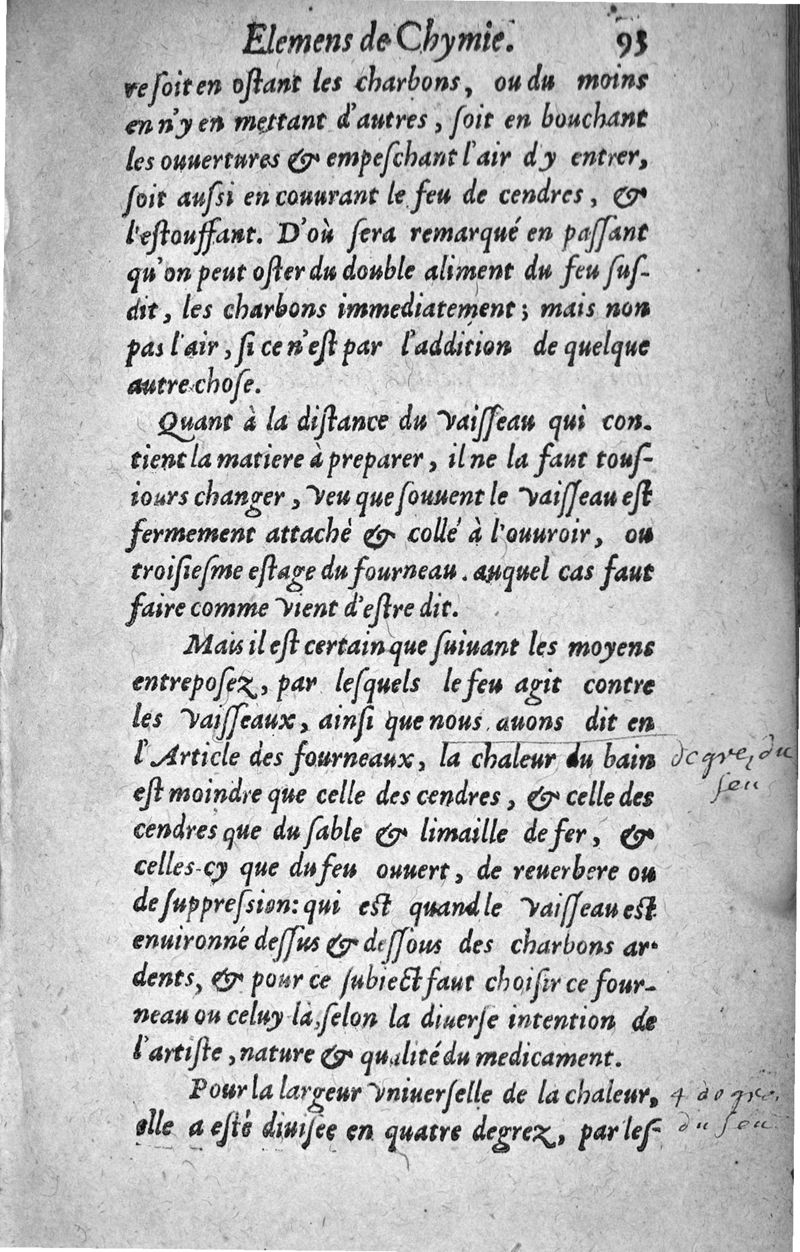 Elemens de Chymie. 93
re soit en ostant les charbons, ou du moins
en n'y en mettant d'autres, soit en bouchant
les ouuertures & empeschant l'air d'y entrer,
soit aussi en couurant le feu de cendres, &
l'estouffant. D'où sera remarqué en passant
qu'on peut oster du double aliment du feu sus-
dit, les charbons immediatement; mais non
pas l'air, si ce n'est par l'addition de quelque
autre chose.
Quant à la distance du vaisseau qui con-
tient la matiere à preparer, il ne la faut tous-
iours changer, veu que souuent le vaisseau est
fermement attaché & collé à l'ouuroir, ou
troisiesme estage du fourneau. auquel cas faut
faire comme vient d'estre dit.
Mais il est certain que suiuant les moyens
entreposez, par lesquels le feu agit contre
les vaisseaux, ainsi que nous auons dit en
l'Article des fourneaux, la chaleur du bain degrez du
est moindre que celle des cendres, & celle des feu
cendres que du sable & limaille de fer, &
celles-cy que du feu ouuert, de reuerbere ou
de suppression: qui est quand le vaisseau est
enuironné dessus & dessous des charbons ar-
dents, & pour ce subiect faut choisir ce four-
neau ou celuy là, selon la diuerse intention de
l'artiste, nature & qualité du medicament.
Pour la largeur vniuerselle de la chaleur, 4 degre.
elle a esté diuisée en quatre degrez, par les- du feu